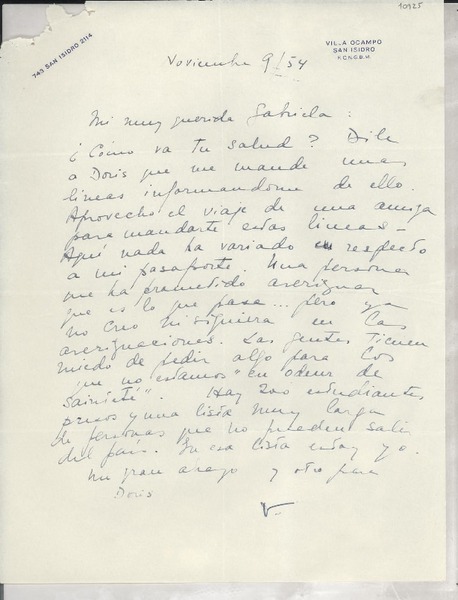 10925
743 SAN ISIDRO 2114
VILLA OCAMPO
SAN ISIDRO
F.C.N.G.B.M.
Noviembre 9/54
Mi muy querida Gabriela :
¿Cómo va tu salud? Dile
a Doris que me mande unas
lineas informandome de ello.
Aprovecho el viaje de una amiga
para mandarte estas lineas –
Aquí nada ha variado respecto
a mi pasaporte. Una persona
me ha prometido averiguar
que es lo que pasa... pero ya
no creo ni siquiera en las
averiguaciones. Las gentes tienen
miedo de pedir algo para los
que no estamos "en odeur de
Sainteté". Hay 200 estudiantes
presos y una lista muy larga
de personas que no pueden salir
del país. En esa lista estoy yo.
Un gran abrazo y otro para
Doris
V.